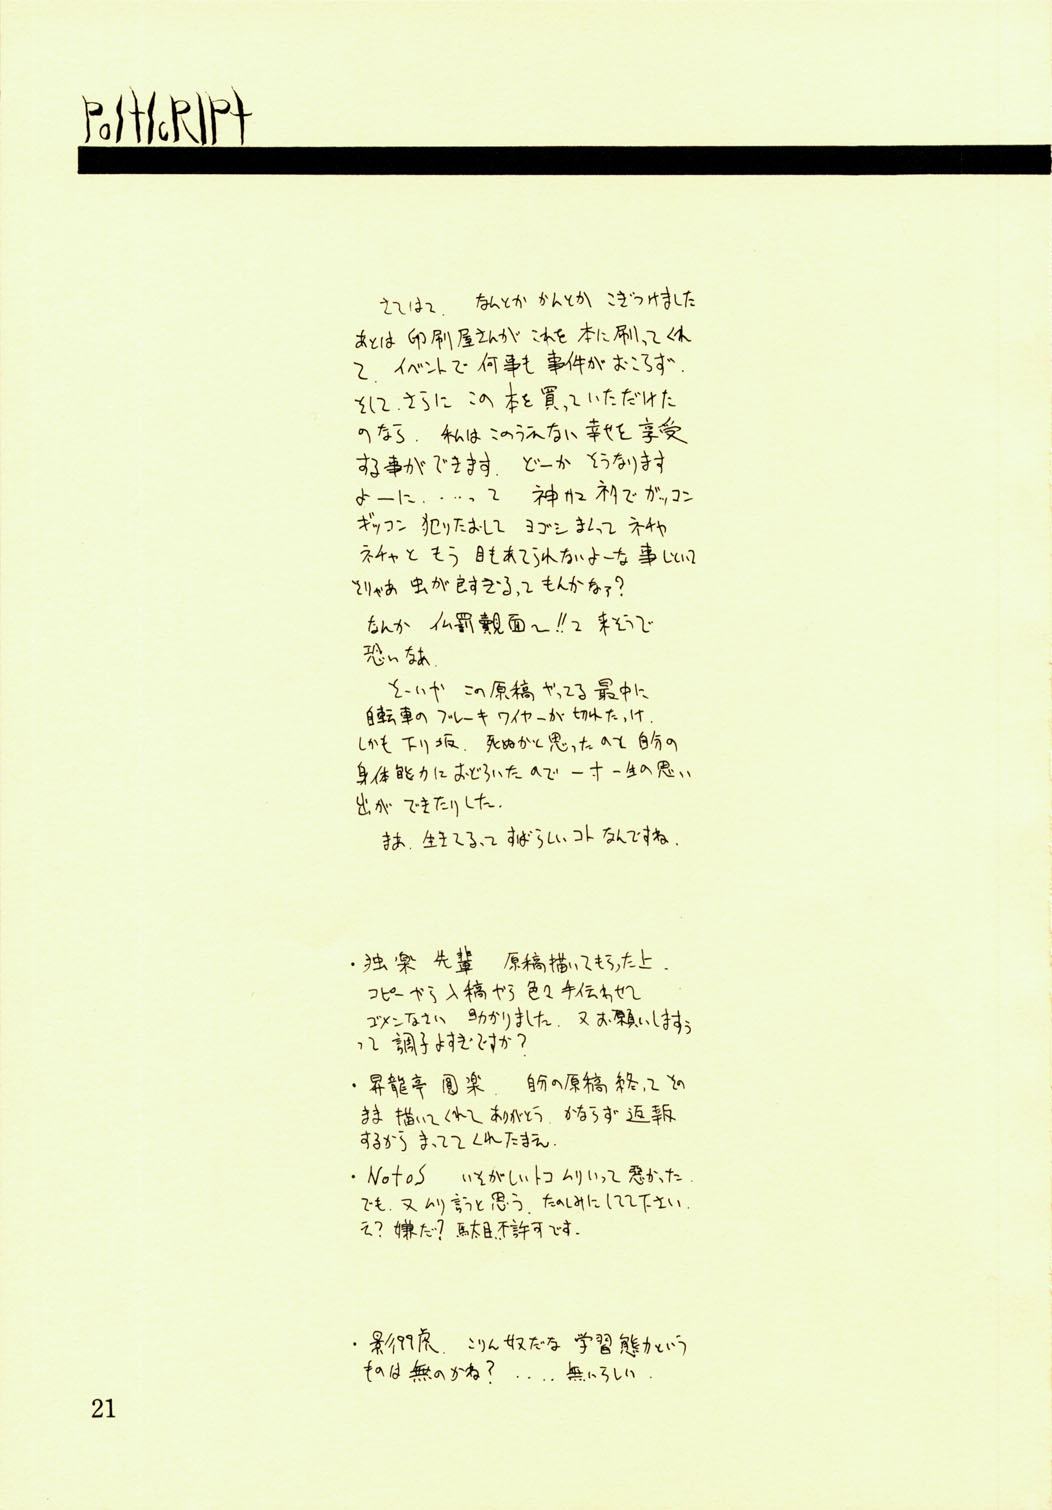 PostScRIPt
さてはて、なんとか かんとか こぎつけました
あとは 印刷屋さんが これを 本に刷ってくれ
て、イベントで 何事も 事件が おころず、
そして、さらに この 本を 買っていただけた
のなら、私は このうえない 幸せを 享受
する事ができます。どーか そうなります
よーに、・・・って 神サマ ネタで ガッコン
ギッコン 犯りたおして ヨゴシまくって ネチャ
ネチャと もう 目もあてられないよーな 事しといて
そりゃあ 虫が良すぎるって もんかなァ?
なんか 仏罰覿面〜!!て 来そうで
恐いなあ。
そーいや この原稿 やってる 最中に
自転車の ブレーキ ワイヤーが 切れたっけ。
しかも 下り坂。死ぬかと思ったのと 自分の
身体能力に おどろいたので 一寸 一生の思い
出が できたりした。
まあ、生きてるって すばらしいコト なんですね。
・独楽 先輩 原稿描いてもらった上、
コピーから 入稿やら 色々 手伝わせて
ゴメンなさい 助かりました。又お願いしますぅ
って 調子よすぎですか?
・昇龍亭 圓楽. 自分の原稿 終って その
まま 描いてくれて ありがとう。かならず 返報
するから まっててくれたまえ。
・NotoS いそがしいトコ ムリいって 悪かった。
でも、又 ムリ言うと思う。たのしみにしてて下さい。
え? 嫌だ? 駄目。不許可です。
・影99虎. こりん奴だな 学習態力という
ものは 無のかね? ・・・・ 無いらしい。
21